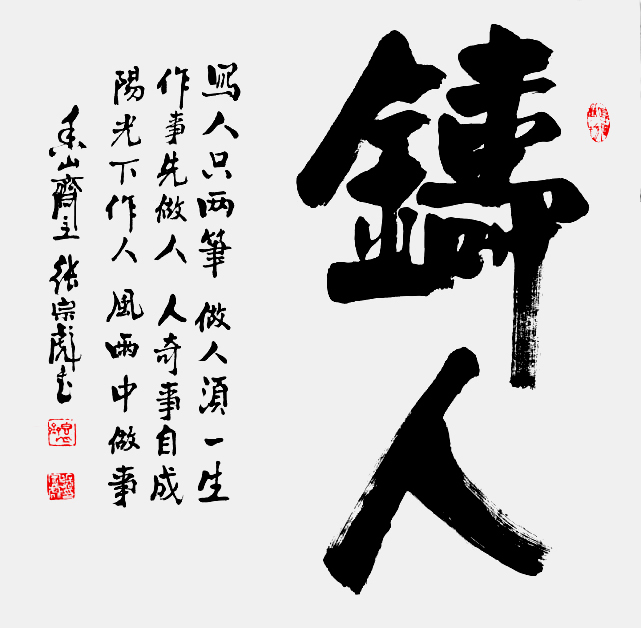 鑄人
寫人只两筆 做人須一生
作事先做人 人奇事自成
陽光下作人 風雨中做事
香山齋主 張宗彪